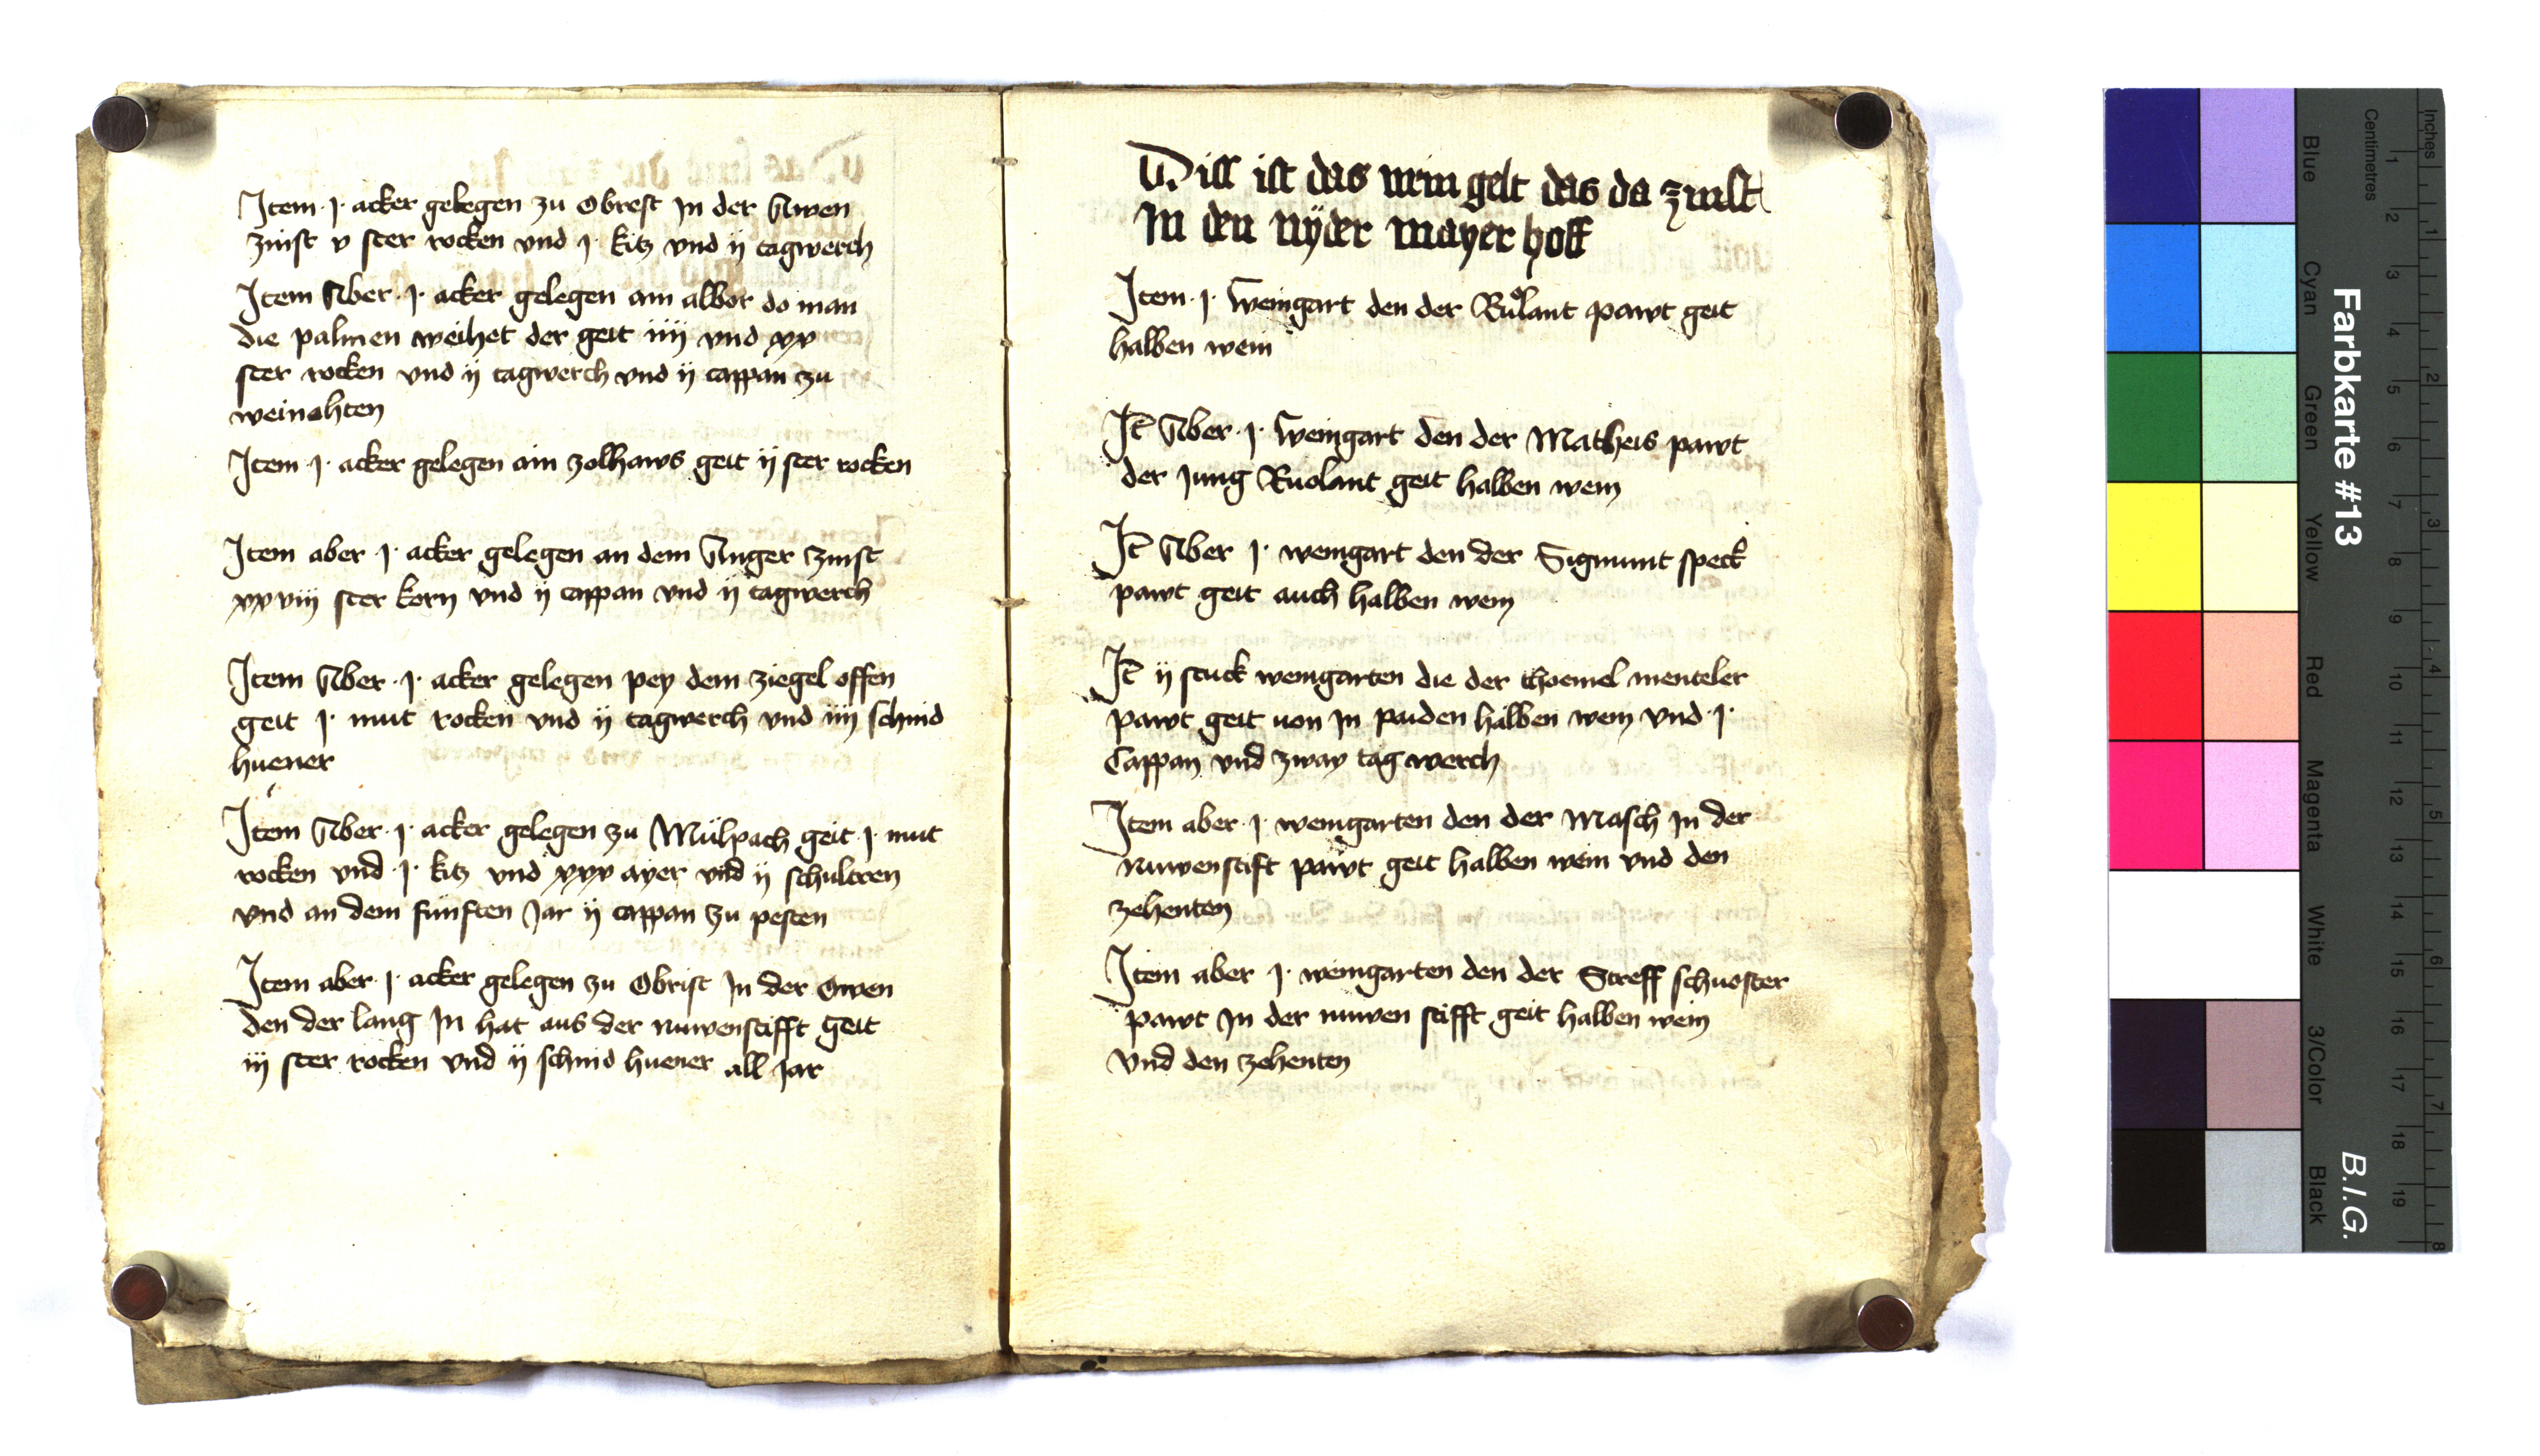 Item · j · acker gelegen zu Obrest jn der Awen
zinst v ster rocken vnd j · kitz vnd ij tagwerch
Item Aber · j · acker gelegen am albor do man
die palmen weihet der geit iiij vnd xxv
ster rocken vnd ij tagwerch vnd ij cappan zu
weinahten
Item · j · acker gelegen am zolhaws geit ij ster rocken
Item aber j · acker gelegen an dem Anger zinst
xxviij ster korn vnd ij cappan vnd ij tagwerch
Item Aber · j · acker gelegen pey dem ziegel offen
geit j · mut rocken vnd ij tagwerch vnd iiij schnid
huener
Item Aber · j · acker gelegen zu Mülpach geit · j · mut
rocken vnd · j · kitz vnd xxx ayer vnd ij schulteren
vnd an dem funften Jar ij cappan zu pesten
Item aber · j · acker gelegen zu Obrist jn der Owen
den der lang jn hat aus der nuwenstifft geit
iij ster rocken vnd ij schnid huener all jar
Diss ist das wein gelt das da zinst
jn den nyder mayer hoff
Item · j · weingart den der Ruolant pawt geit
halben wein
It Aber · j · weingart den der Matheis pawt
der jung Ruolant geit halben wein
It Aber j · weingart den der Sigmunt speck
pawt geit auch halben wein
It ij stuck weingarten die der thoemel menteler
pawt geit von jn paiden halben wein vnd · j ·
Cappan vnd zway tag werch
Item aber · j · weingarten den der Masch jn der
nuwenstift pawt geit halben wein vnd den
zehenten
Item aber j · weingarten den der Streff schuoster
pawt jn der nuwen stifft geit halben wein
vnd den zehenten
Farbkarte #13
B.I.G.
Blue
Cyan
Green
Yellow
Red
Magenta
White
3/Color
Black
Centimetres
1 2 3 4 5 6 7 8 9 10 11 12 13 14 15 16 17 18 19
Inches
1 2 3 4 5 6 7 8